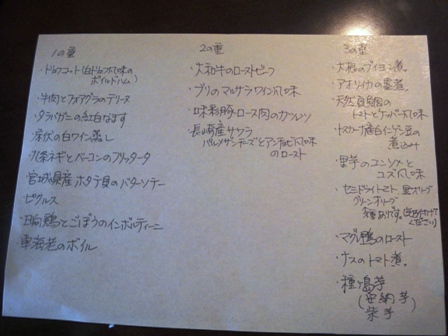 1の重
・トリュフコット(白トリュフ風味の
ボイルドハム)
・牛肉とフォアグラのテリーヌ
・タラバガニの紅白なます
・床伏の白ワイン蒸し
・九条ネギとベーコンのフリッタータ
・宮城県産ホタテ貝のバターソテー
ピクルス
・日向鶏とごぼうのインボルティーニ
車海老のボイル
2の重
・大和牛のローストビーフ
・ブリのマルサラワイン風味
・味麗豚ロース肉のカツレツ
・長崎産サワラ
パルメザンチーズとアンチョビ風味
のロースト
3の重
・大根のブイヨン煮
・アオリイカの墨煮
・天然真鯛の
トマトとケッパー風味
・トスカーナ産白インゲン豆の
煮込み
・里芋のコンソメと
ユズ風味
・セミドライトマト、黒オリーブ
グリーンオリーブ
種あります。(気を付けて
ください)
・マグレ鴨のロースト
・ナスのトマト煮
・種子島芋
(安納芋
紫芋